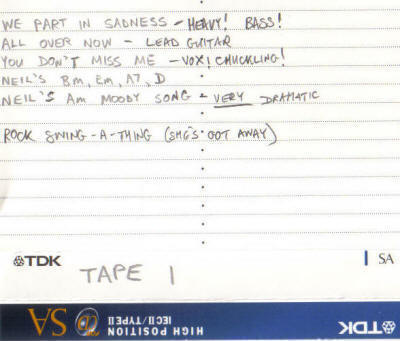 WE PART IN SADNESS - HEAVY! BASS!
ALL OVER NOW - LEAD GUITAR
YOU DON'T MISS ME - VOX! CHUCKLING!
NEIL'S Bm, Em, A7, D
NEIL'S Am MOODY SONG - VERY DRAMATIC
ROCK SWING-A-THING (SHE'S GOT AWAY)
TDK SA
TAPE 1
SA HIGH POSITION TDK
IECII/TYPEII